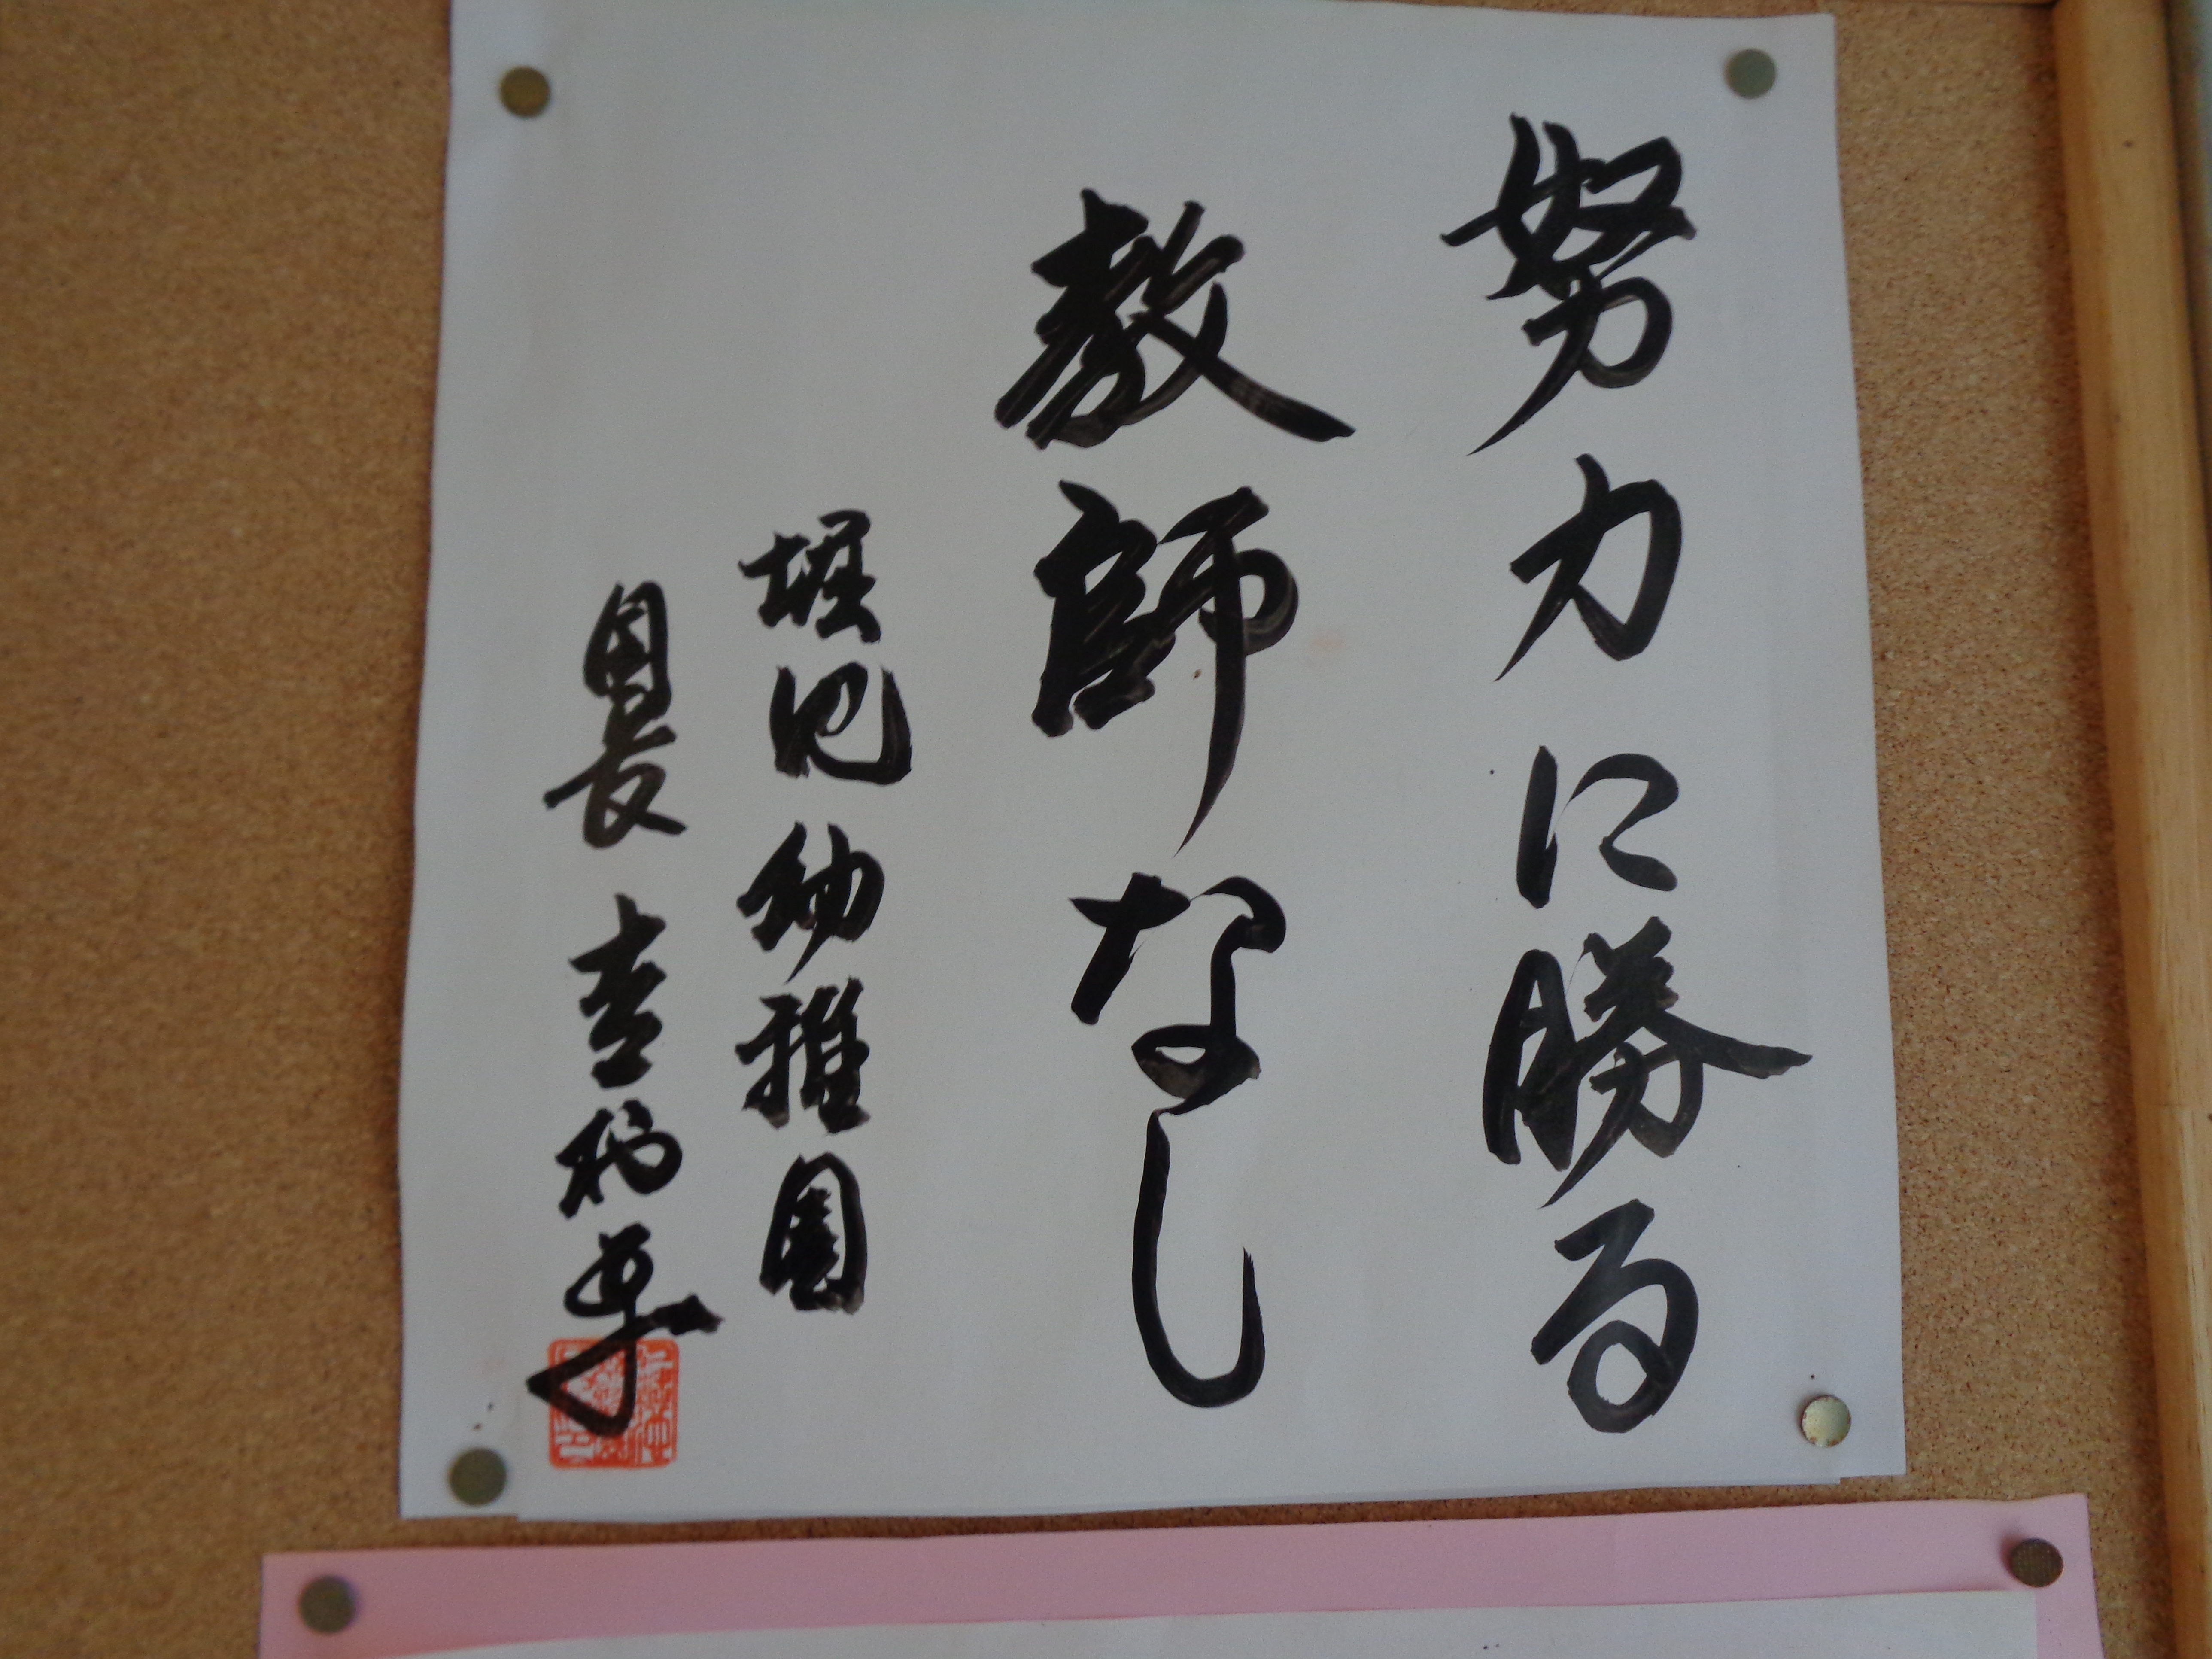 努力に勝る
教師なし
堀兼幼稚園
園長 吉